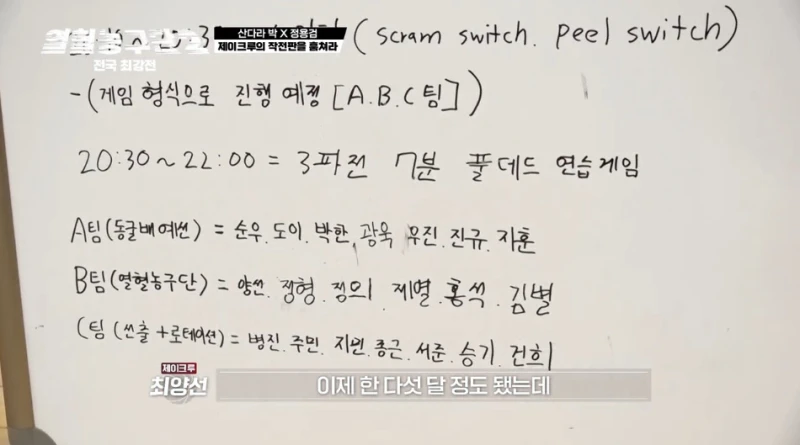 열혈농구단
전국 최강전
산다라 박 X 정용검
제이크루의 작전판을 훔쳐라
(scram switch. peel switch)
-(게임 형식으로 진행 예정 [A.B.C 팀])
20:30~22:00 = 3파전 7분 풀데드 연습게임
A팀(동굴배예선) = 순우. 도이. 박한. 광욱. 우진. 진규. 지훈
B팀(열혈농구단) = 양선. 정형. 정의. 제열. 홍석. 김별
C팀 (선출+로테이션) = 병진. 주민. 지원. 종근. 서준. 승기. 건희
제이크루
최양선
이제 한 다섯 달 정도 됐는데